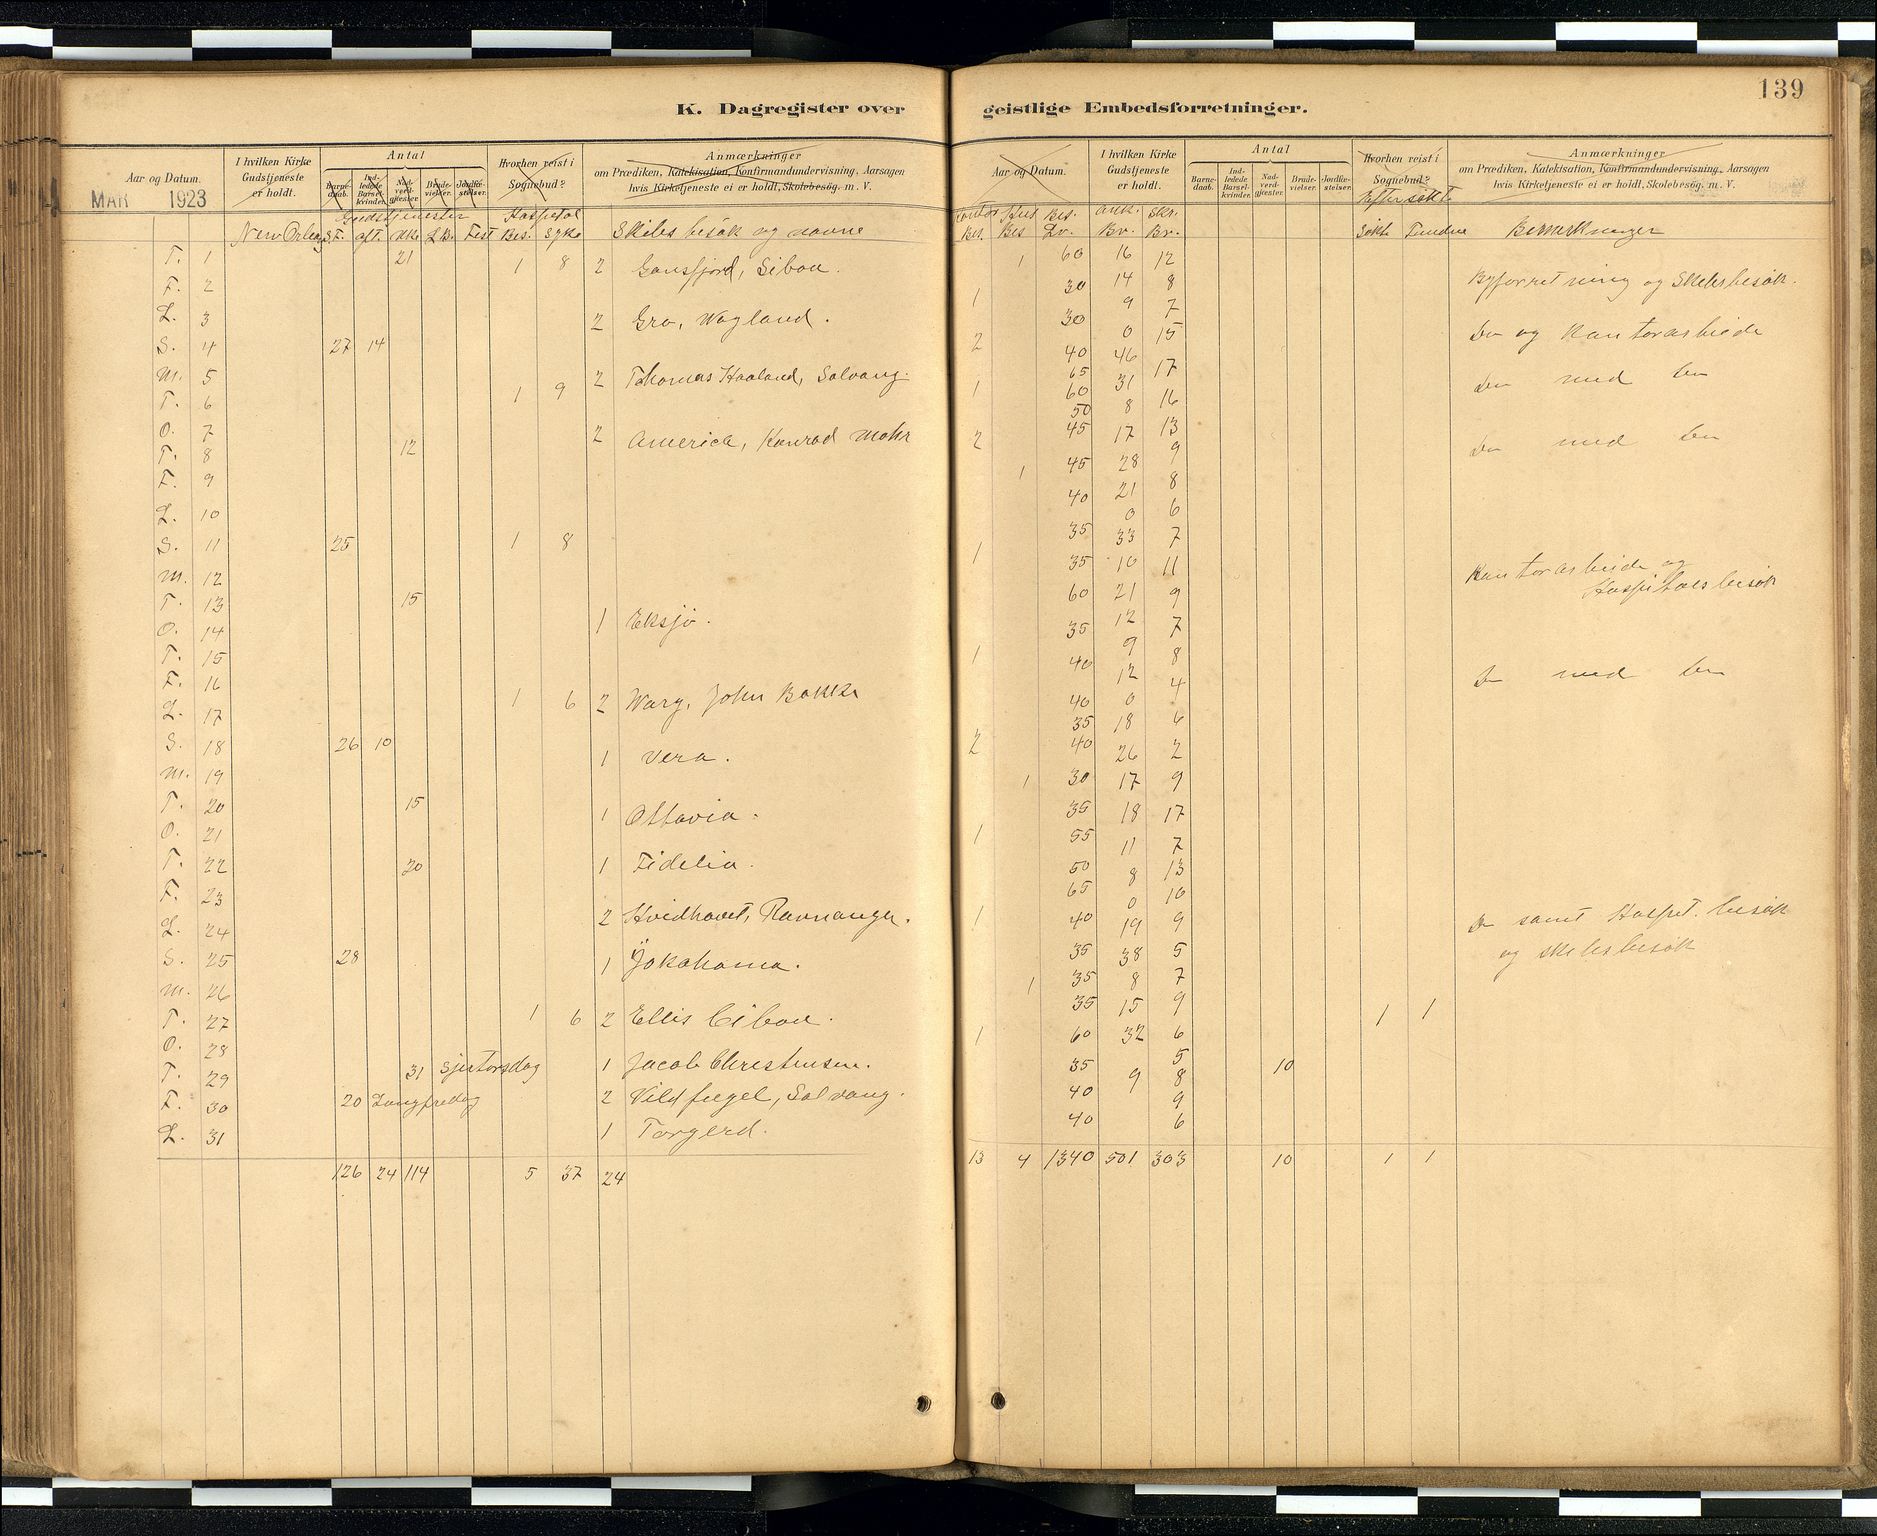 139
K. Dagregister over geistlige Embedsforretninger.
Aar og Datum.
MAR 1923
I hvilken Kirke Gudstjeneste er holdt.
Antal
Barne-daab.
Ind-ledede Barsel-kvinder.
Nad-verd-gjæster
Brude-vielser.
Jordfæ-stelser.
Hvorhen reist i Sognebud?
Anmærkninger
om Prædiken, Katekisation, Konfirmandundervisning, Aarsagen
hvis Kirketjeneste ei er holdt, Skolebesøg. m. V.
Gudstjenester Hospital
New Orleans S.F. aft. uke L.B. Fest Bes. syke Skibs besøk og navne
T. 1 21 1 8 2 Gansfjord, Siboa.
F. 2
L. 3 2 Gro, Wagland.
S. 4 27 14
M. 5 2 Thomas Haaland, Solvang.
T. 6 1 9
O. 7 2 America, Konrad Mohr
T. 8 12
F. 9
L. 10
S. 11 25 1 8
M. 12
T. 13 15
O. 14 1 Eksjø.
T. 15
F. 16 1 6 2 Warg, John Bakke
L. 17
S. 18 26 10 1 Vera.
M. 19
T. 20 15 1 Ottavia.
O. 21
T. 22 20 1 Fidelia.
F. 23
L. 24 2 Hvidhavet, Ravnanger.
S. 25 28 1 Yokohama.
M. 26
T. 27 1 6 2 Ellis Ciboa.
O. 28
T. 29 31 Sjertorsdag 1 Jacob Christensen.
F. 30 20 Langfredag 2 Vildfugel, Solvang.
L. 31 1 Torgerd.
126 24 114 5 37 24
Aar og Datum.
I hvilken Kirke Gudstjeneste er holdt.
Antal
Barne-daab.
Ind-ledede Barsel-kvinder.
Nad-verd-gjæster.
Brude-vielser.
Jordfæ-stelser.
Hvorhen reist i Sognebud?
Anmærkninger
om Prædiken, Katekisation, Konfirmandundervisning, Aarsagen
hvis Kirketjeneste ei er holdt, Skolebesøg. m. V.
Kontor Hus Bes. ank. Skr. Eftersøkt
Bes. Bes Lv. Br. Br. Søkte Fundne Bemerkninger
1 60 16 12
1 30 14 8 Byforretning og Skibsbesøk.
30 9 7
2 0 15 Do og Kontorarbeide
40 46
65 31 17
1 60 8 16 Do med do
50
2 45 17 13 Do med do
1 45 28 9
40 21 8
0 6
35 33 7
1 35 10 11 Kontorarbeide og
60 21 9 Hospitalsbesøk
35 12 7
1 40 9 8
12 4 Do med do
40 0
35 18 6
2 40 26 2
1 30 17 9
35 18 17
1 55 11 7
50 8 13
65 0 10
1 40 19 9 Do samt Hospit. besøk
35 38 5 og skibsbesøk
1 35 8 7
35 15 9 1 1
1 60 32 6
35 5 10
9 8
40 9
40 6
13 4 1340 501 303 10 1 1